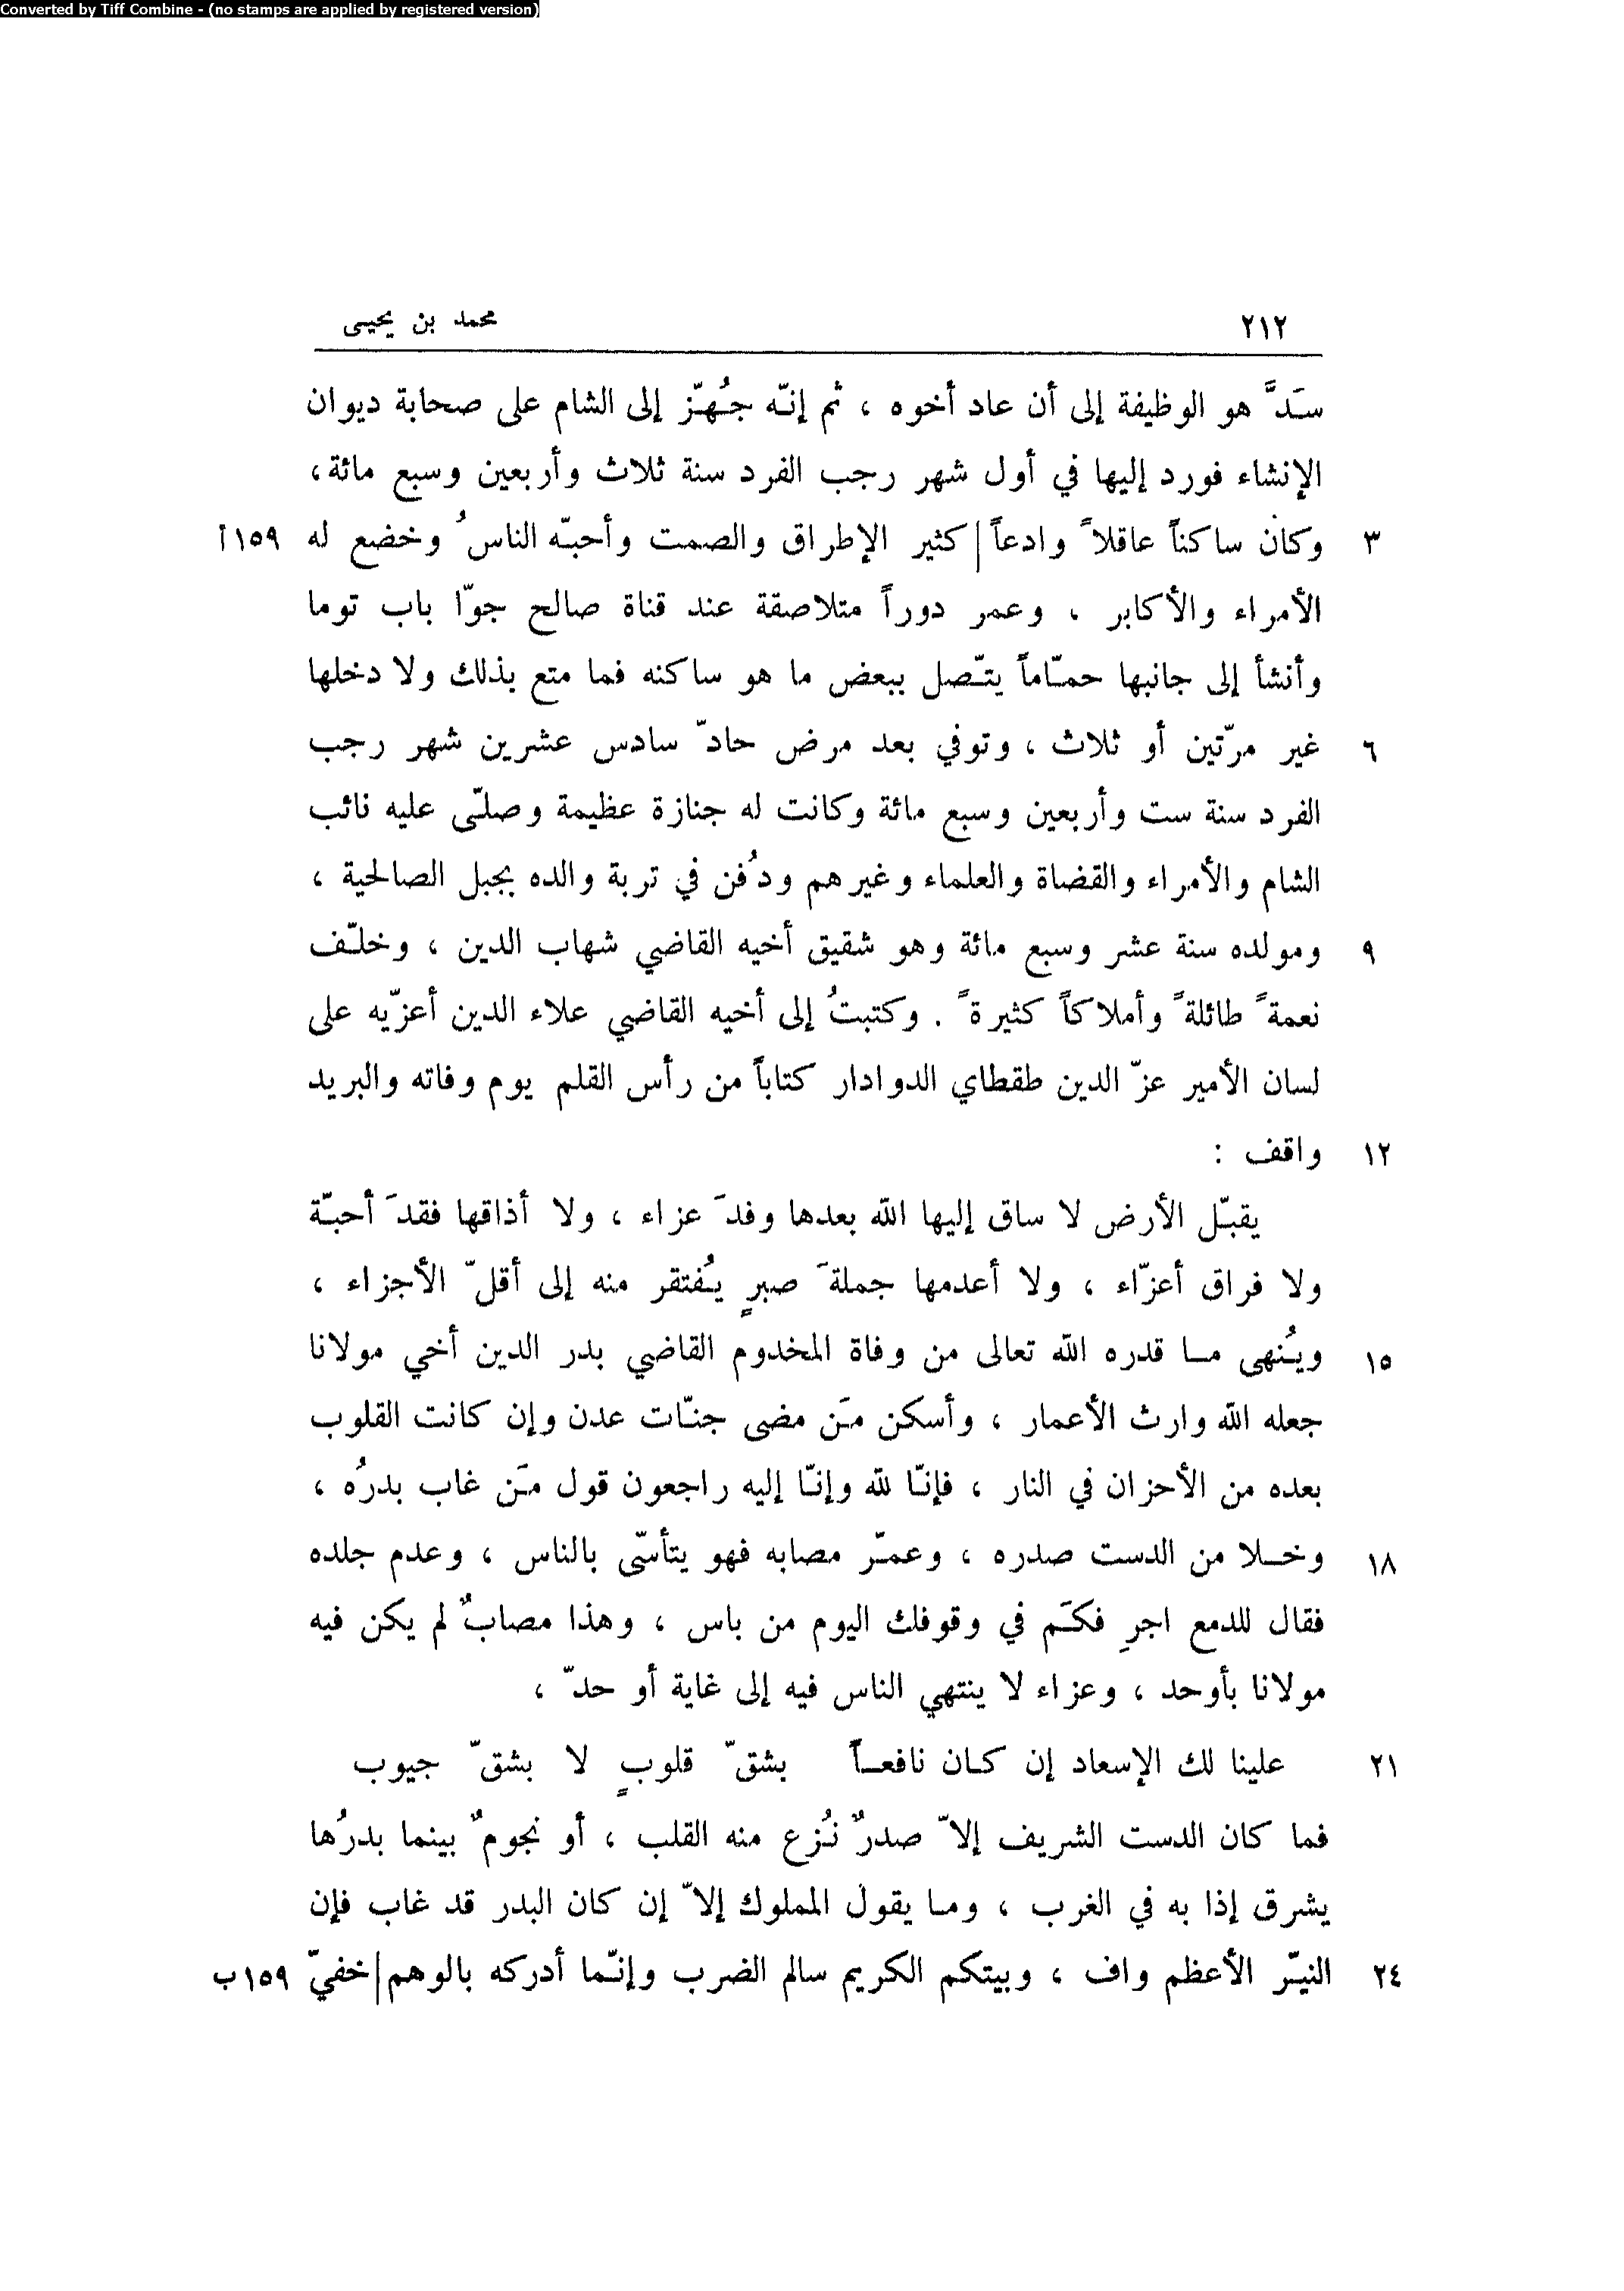 Converted by Tiff Combine - (no stamps are applied by registered version)
٢١٢ محمد بن يحيى
سَدَّ هو الوظيفة إلى أن عاد أخوه ، ثم إنّه جُهّز إلى الشام على صحابة ديوان
الإنشاء فورد إليها في أول شهر رجب الفرد سنة ثلاث وأربعين وسبع مائة ،
٣ وكان ساكناً عاقلاً وادعاً | كثير الإطراق والصمت وأحبّه الناسُ وخضع له ١٥٩ أ
الأمراء والأكابر ، وعمر دوراً متلاصقة عند قناة صالح جوّا باب توما
وأنشأ إلى جانبها حمّاماً يتّصل ببعض ما هو ساكنه فما متع بذلك ولا دخلها
٦ غير مرّتين أو ثلاث ، وتوفي بعد مرض حادّ سادس عشرين شهر رجب
الفرد سنة ست وأربعين وسبع مائة وكانت له جنازة عظيمة وصلّى عليه نائب
الشام والأمراء والقضاة والعلماء وغيرهم ودُفن في تربة والده بجبل الصالحية ،
٩ ومولده سنة عشر وسبع مائة وهو شقيق أخيه القاضي شهاب الدين ، وخلّف
نعمةً طائلةً وأملاكاً كثيرةً . وكتبتُ إلى أخيه القاضي علاء الدين أعزّيه على
لسان الأمير عزّ الدين طقطاي الدوادار كتاباً من رأس القلم يوم وفاته والبريد
١٢ واقف :
يقبّل الأرض لا ساق إليها الله بعدها وفدَ عزاء ، ولا أذاقها فقدَ أحبّة
ولا فراق أعزّاء ، ولا أعدمها جملةَ صبرٍ يُفتقر منه إلى أقلّ الأجزاء ،
١٥ ويُنهى ما قدره الله تعالى من وفاة المخدوم القاضي بدر الدين أخي مولانا
جعله الله وارث الأعمار ، وأسكن مَن مضى جنّات عدن وإن كانت القلوب
بعده من الأحزان في النار ، فإنّا لله وإنّا إليه راجعون قول مَن غاب بدرُه ،
١٨ وخلا من الدست صدره ، وعمّر مصابه فهو يتأسّى بالناس ، وعدم جلده
فقال للدمع اجرِ فكَم في وقوفك اليوم من باس ، وهذا مصابٌ لم يكن فيه
مولانا بأوحد ، وعزاء لا ينتهي الناس فيه إلى غاية أو حدّ ،
٢١ علينا لك الإسعاد إن كان نافعاً بشقّ قلوبٍ لا بشقّ جيوب
فما كان الدست الشريف إلاّ صدرٌ نُزع منه القلب ، أو نجومٌ بينما بدرُها
يشرق إذا به في الغرب ، وما يقول المملوك إلاّ إن كان البدر قد غاب فإن
٢٤ النيّر الأعظم واف ، وبيتكم الكريم سالم الضرب وإنّما أدركه بالوهم | خفيّ ١٥٩ ب